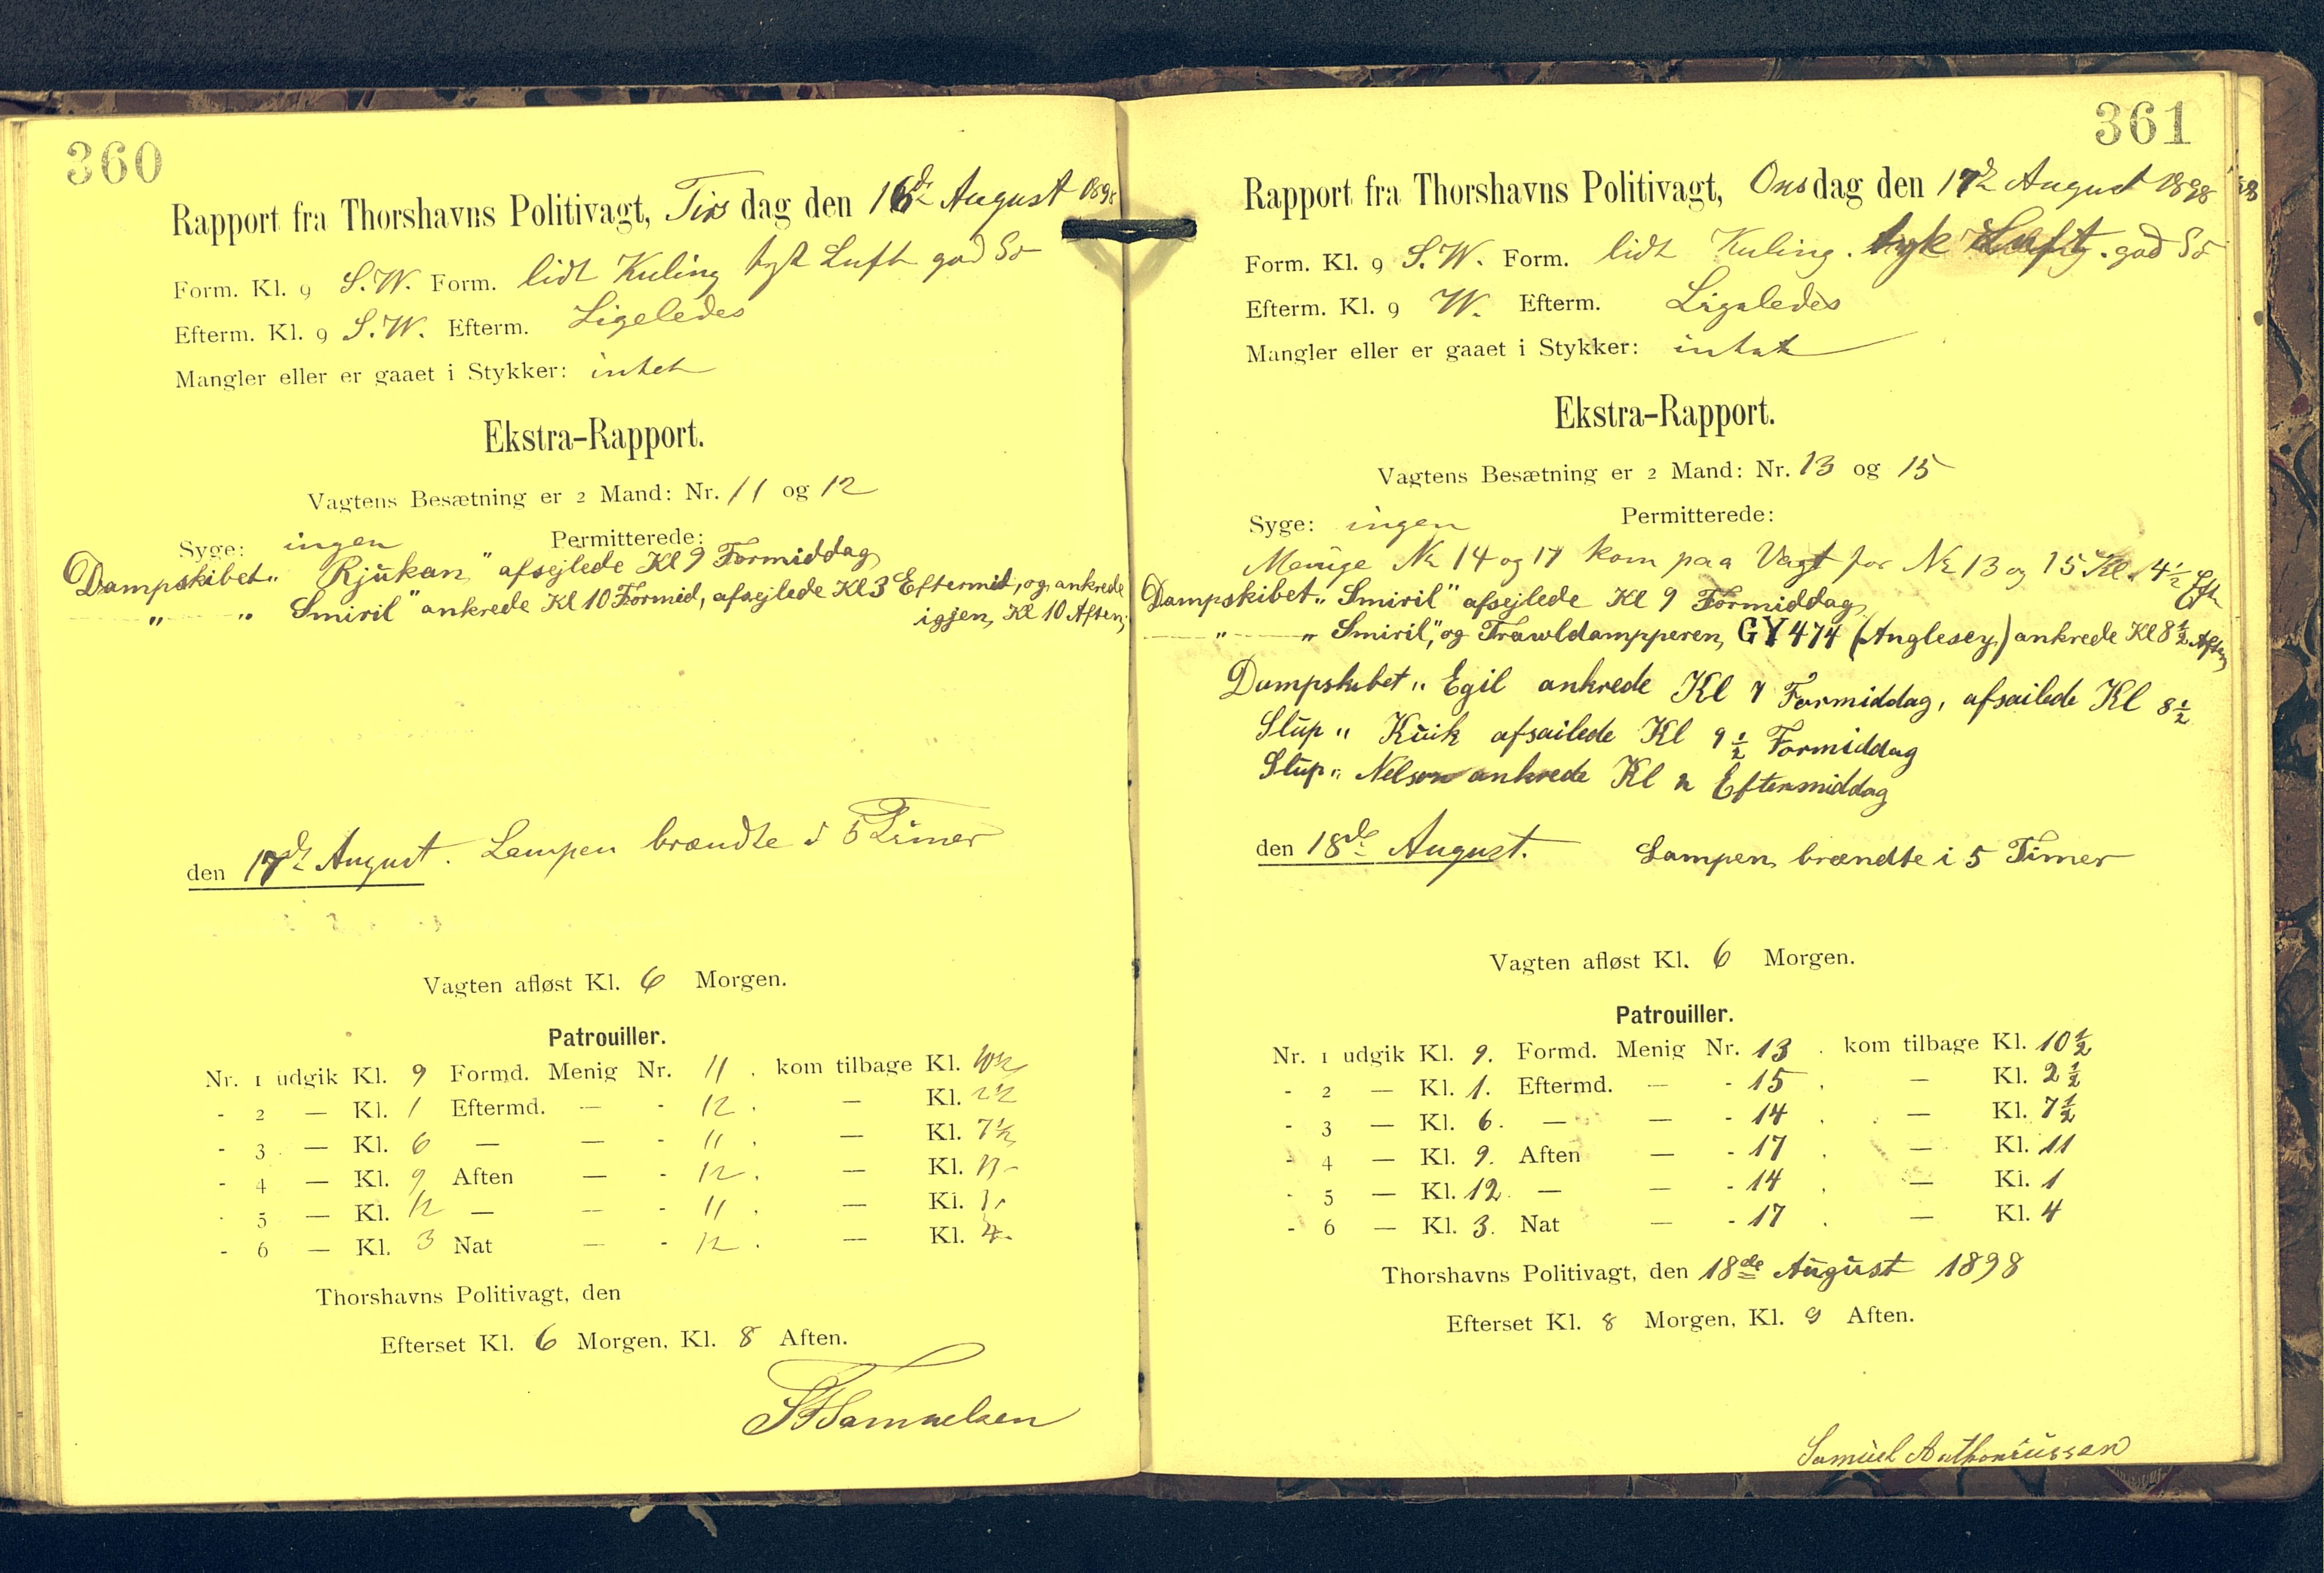 360
Rapport fra Thorshavns Politivagt, Tirsdag den 16de August 1898
Form. Kl. 9 S.W. Form. lidt Kuling tyk Luft god Sö
Efterm. Kl. 9 S.W. Efterm. Ligeledes
Mangler eller er gaaet i Stykker: intet
Ekstra-Rapport.
Vagtens Besætning er 2 Mand: Nr. 11 og 12
Syge: ingen Permitterede:
Dampskibet „Rjükan" afsejlede Kl 9 Formiddag
„ „ Smiril" ankrede Kl 10 Formid, afsejlede Kl 3 Eftermid, og ankrede
igjen, Kl 10 Aften,
den 17de August. Lampen brændte i 5 Timer
Vagten afløst Kl. 6 Morgen.
Patrouiller.
Nr. 1 udgik Kl. 9 Formd. Menig Nr. 11. kom tilbage Kl. 10½
- 2 — Kl. 1 Eftermd. — - 12. — Kl. 2½
- 3 — Kl. 6 — — - 11. — Kl. 7½
- 4 — Kl. 9 Aften — - 12. — Kl. 11
- 5 — Kl. 12 — — - 11. — Kl. 1
- 6 — Kl. 3 Nat — - 12. — Kl. 4
Thorshavns Politivagt, den
Efterset Kl. 6 Morgen, Kl. 8 Aften.
Samuelsen
361
Rapport fra Thorshavns Politivagt, Onsdag den 17de August 1898
Form. Kl. 9 S.W. Form. lidt Kuling. tyk Luft. god Sö
Efterm. Kl. 9 W. Efterm. Ligeledes
Mangler eller er gaaet i Stykker: intet
Ekstra-Rapport.
Vagtens Besætning er 2 Mand: Nr. 13 og 15
Syge: ingen Permitterede:
Menige Nr 14 og 17 kom paa Vagt for Nr 13 og 15 Kl. 4½ Eft
Dampskibet „Smiril" afsejlede Kl 9 Formiddag
„ „ Smiril", og Trawldampperen, GY 474 (Anglesey) ankrede Kl 8½ Aften
Dampskibet „ Egil ankrede Kl 7 Formiddag, afsailede Kl 8½
Slüp „ Küik afsailede Kl 9½ Formiddag
Slüp „ Nelson ankrede Kl 2 Eftermiddag
den 18de August. Lampen brændte i 5 Timer
Vagten afløst Kl. 6 Morgen.
Patrouiller.
Nr. 1 udgik Kl. 9. Formd. Menig Nr. 13. kom tilbage Kl. 10½
- 2 — Kl. 1. Eftermd. — - 15. — Kl. 2½
- 3 — Kl. 6. — — - 14. — Kl. 7½
- 4 — Kl. 9. Aften — - 17. — Kl. 11
- 5 — Kl. 12. — — - 14. — Kl. 1
- 6 — Kl. 3. Nat — - 17. — Kl. 4
Thorshavns Politivagt, den 18de Aügüst 1898
Efterset Kl. 8 Morgen, Kl. 9 Aften.
Samüel Anthoniüssen